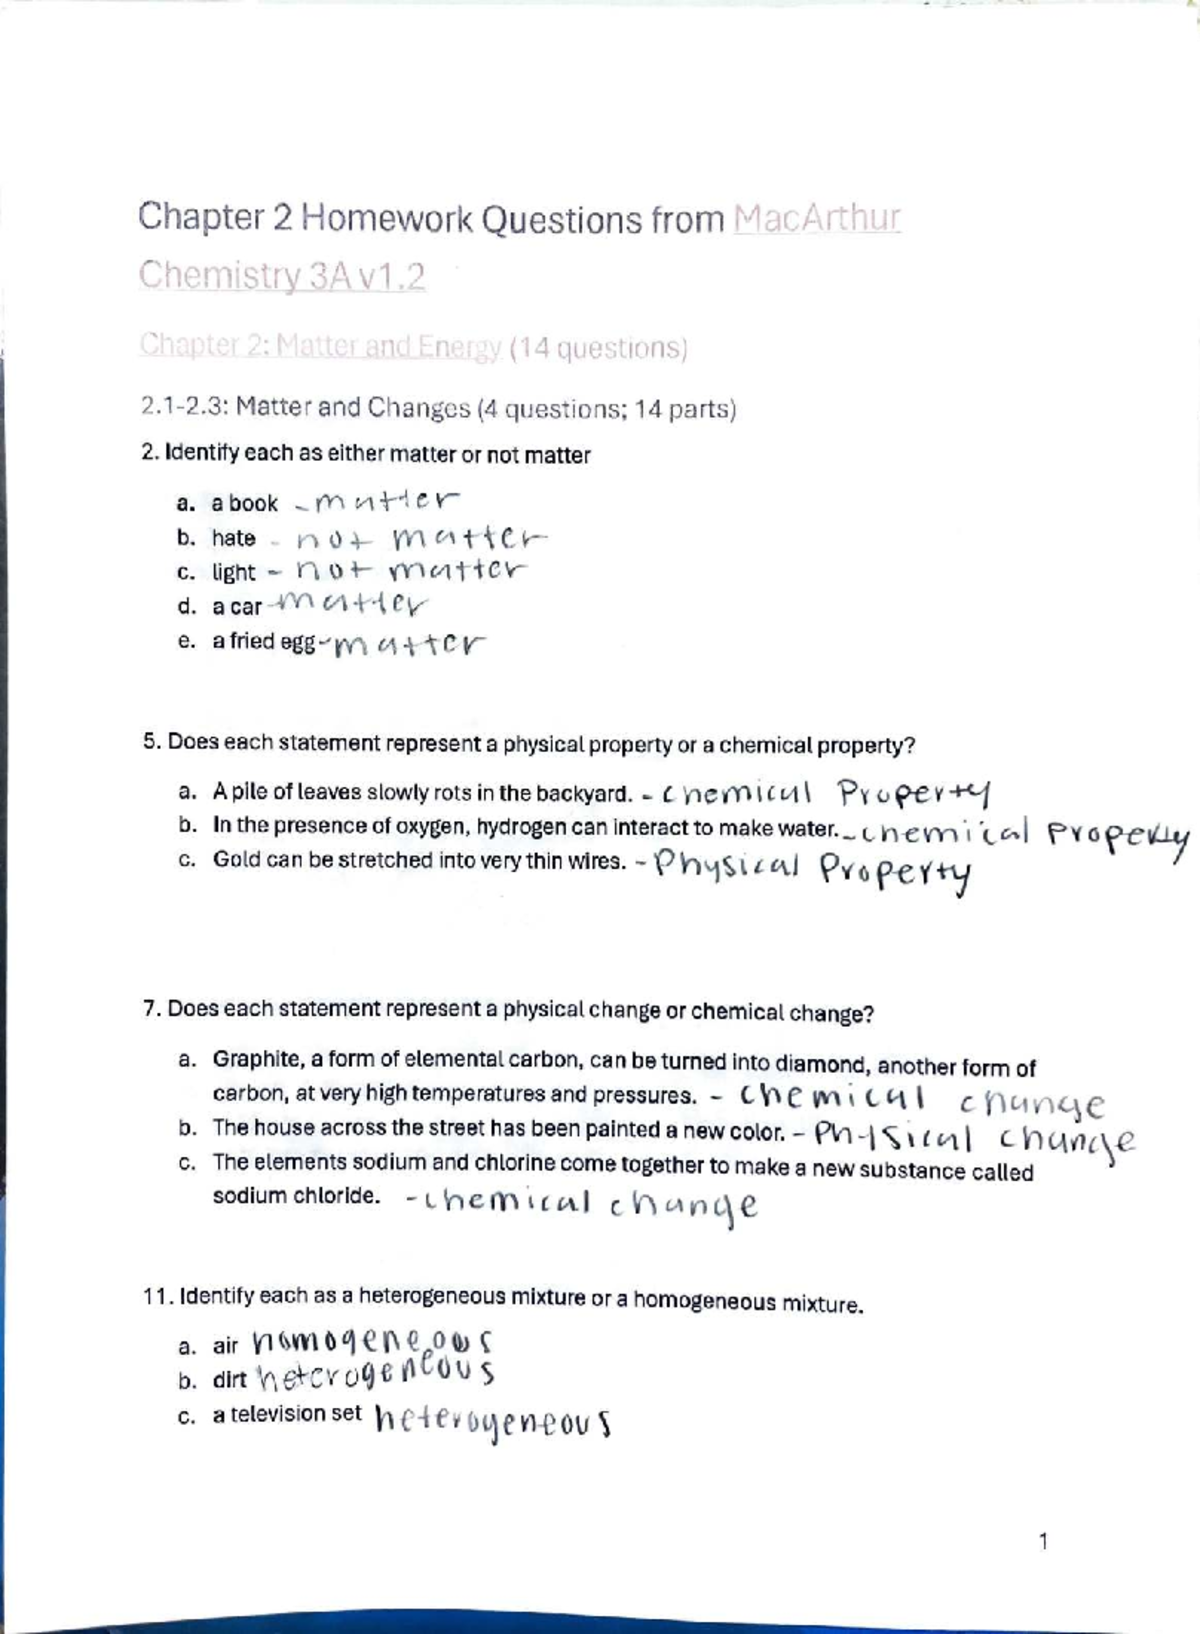 Chapter 2 Homework Questions from MacArthur
Chemistry 3A v1.2
Chapter 2: Matter and Energy (14 questions)
2.1-2.3: Matter and Changes (4 questions; 14 parts)
2. Identify each as either matter or not matter
a. a book - matter
b. hate - not matter
c. light - not matter
d. a car - matter
e. a fried egg - matter
5. Does each statement represent a physical property or a chemical property?
a. A pile of leaves slowly rots in the backyard. - chemical Property
b. In the presence of oxygen, hydrogen can interact to make water. - chemical property
c. Gold can be stretched into very thin wires. - Physical Property
7. Does each statement represent a physical change or chemical change?
a. Graphite, a form of elemental carbon, can be turned into diamond, another form of
carbon, at very high temperatures and pressures. - chemical change
b. The house across the street has been painted a new color. - Physical change
c. The elements sodium and chlorine come together to make a new substance called
sodium chloride. - chemical change
11. Identify each as a heterogeneous mixture or a homogeneous mixture.
a. air homogeneous
b. dirt heterogeneous
c. a television set heterogeneous
1